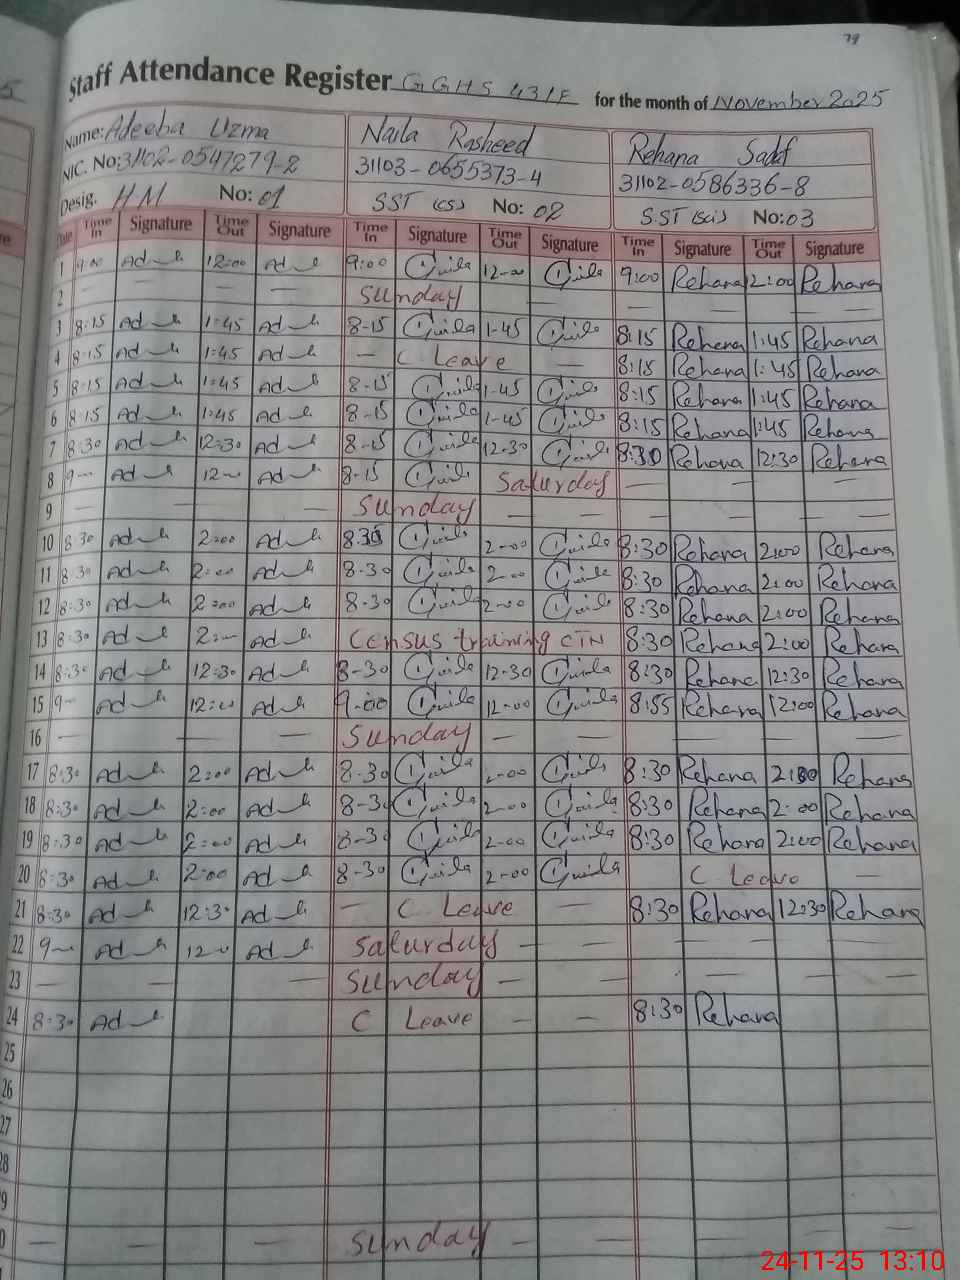 79
Staff Attendance Register GGHS 43/F for the month of November 2025
Name: Adeeba Uzma Naila Rasheed Rehana Sadaf
NIC. No: 31102-0547279-2 31103-0655373-4 31102-0586336-8
Desig. HM No: 01 SST (CS) No: 02 SST (Sci) No: 03
Date Time In Signature Time Out Signature Time In Signature Time Out Signature Time In Signature Time Out Signature
1 9:00 12:00 9:00 12-00 9:00 Rehana 12:00 Rehana
2 — — — — Sunday — — — —
3 8:15 1:45 8-15 1-45 8:15 Rehana 1:45 Rehana
4 8:15 1:45 — C Leave — 8:15 Rehana 1:45 Rehana
5 8:15 1:45 8-15 1-45 8:15 Rehana 1:45 Rehana
6 8:15 1:45 8-15 1-45 8:15 Rehana 1:45 Rehana
7 8:30 12:30 8-15 12-30 8:30 Rehana 12:30 Rehana
8 9— 12— 8-15 Saturday — — — —
9 — — — — Sunday — — — — — —
10 8:30 2:00 8.30 2-00 8:30 Rehana 2:00 Rehana
11 8:30 2:00 8-30 2-00 8:30 Rehana 2:00 Rehana
12 8:30 2:00 8-30 2-00 8:30 Rehana 2:00 Rehana
13 8:30 2:— Census training CTN 8:30 Rehana 2:00 Rehana
14 8:30 12:30 8-30 12-30 8:30 Rehana 12:30 Rehana
15 9— 12:00 9-00 12-00 8:55 Rehana 12:00 Rehana
16 — — — Sunday — — — — — —
17 8:30 2:00 8-30 2-00 8:30 Rehana 2:00 Rehana
18 8:30 2:00 8-30 2-00 8:30 Rehana 2:00 Rehana
19 8:30 2:00 8-30 2-00 8:30 Rehana 2:00 Rehana
20 8:30 2:00 8-30 2-00 C Leave —
21 8:30 12:30 — C Leave — 8:30 Rehana 12:30 Rehana
22 9— 12— Saturday — — — — — —
23 — — — Sunday — — — — —
24 8:30 C Leave — — 8:30 Rehana
25
26
27
28
29
30 — — — — Sunday — — — — —
24-11-25 13:10